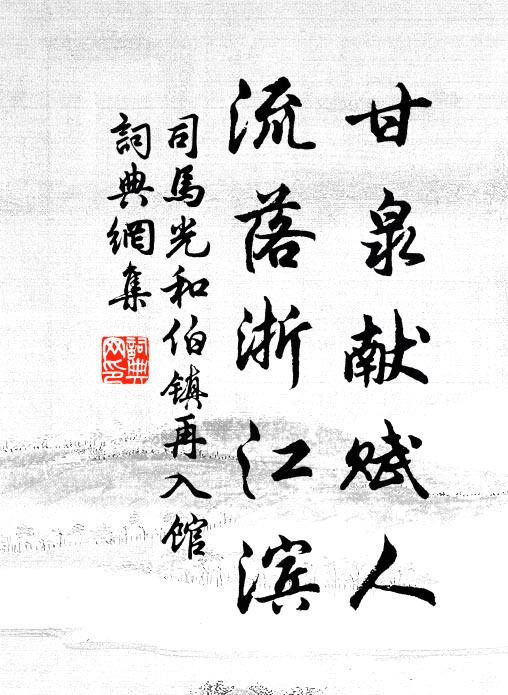 甘泉献赋人
流落浙江滨
司馬光和伯镇再入馆
詞典網集
詞典
网印